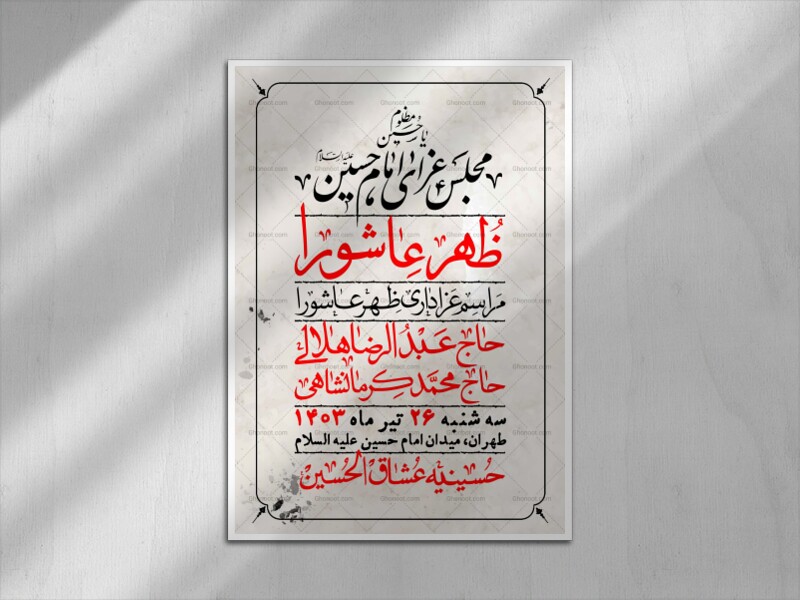 یا حسین مظلوم
مجلس عزای امام حسین علیه السلام
ظهر عاشورا
مراسم عزاداری ظهر عاشورا
حاج عبدالرضا هلالی
حاج محمد کرمانشاهی
سه شنبه ۲۶ تیر ماه ۱۴۰۳
طهران، میدان امام حسین علیه السلام
حسینیه عشاق الحسین
Ghonoot.com